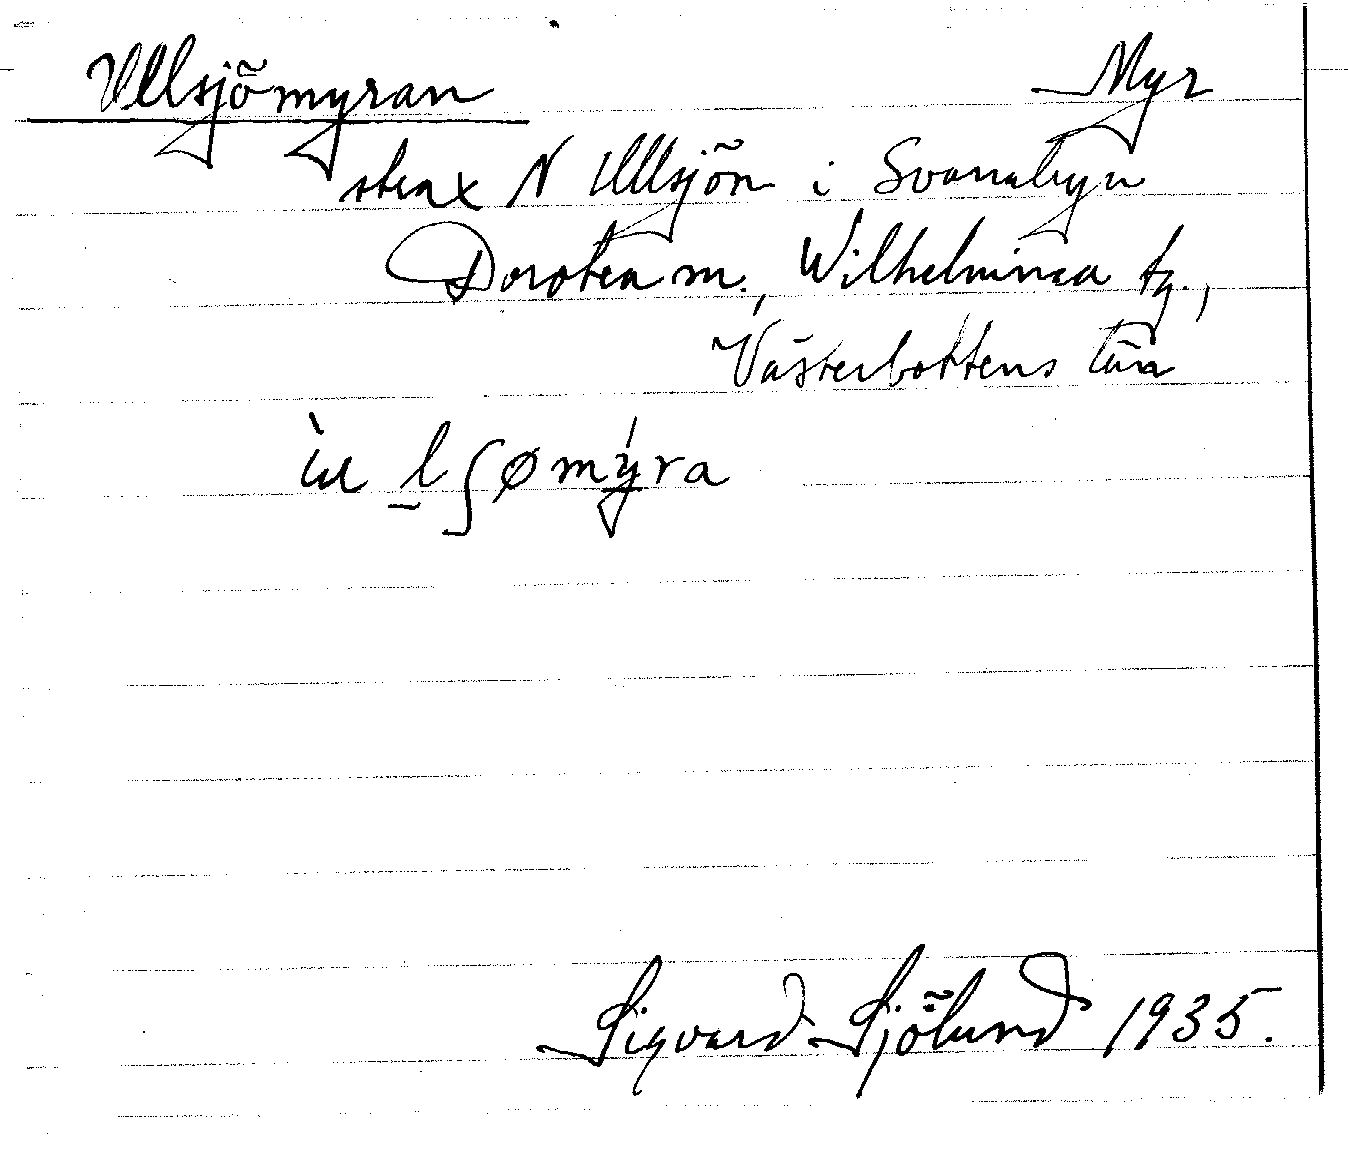 Ullsjömyran Myr
strax N Ullsjön i Svanabyn
Dorotea sn., Wilhelmina tg.,
Västerbottens län
Sigvard Sjölund 1935.